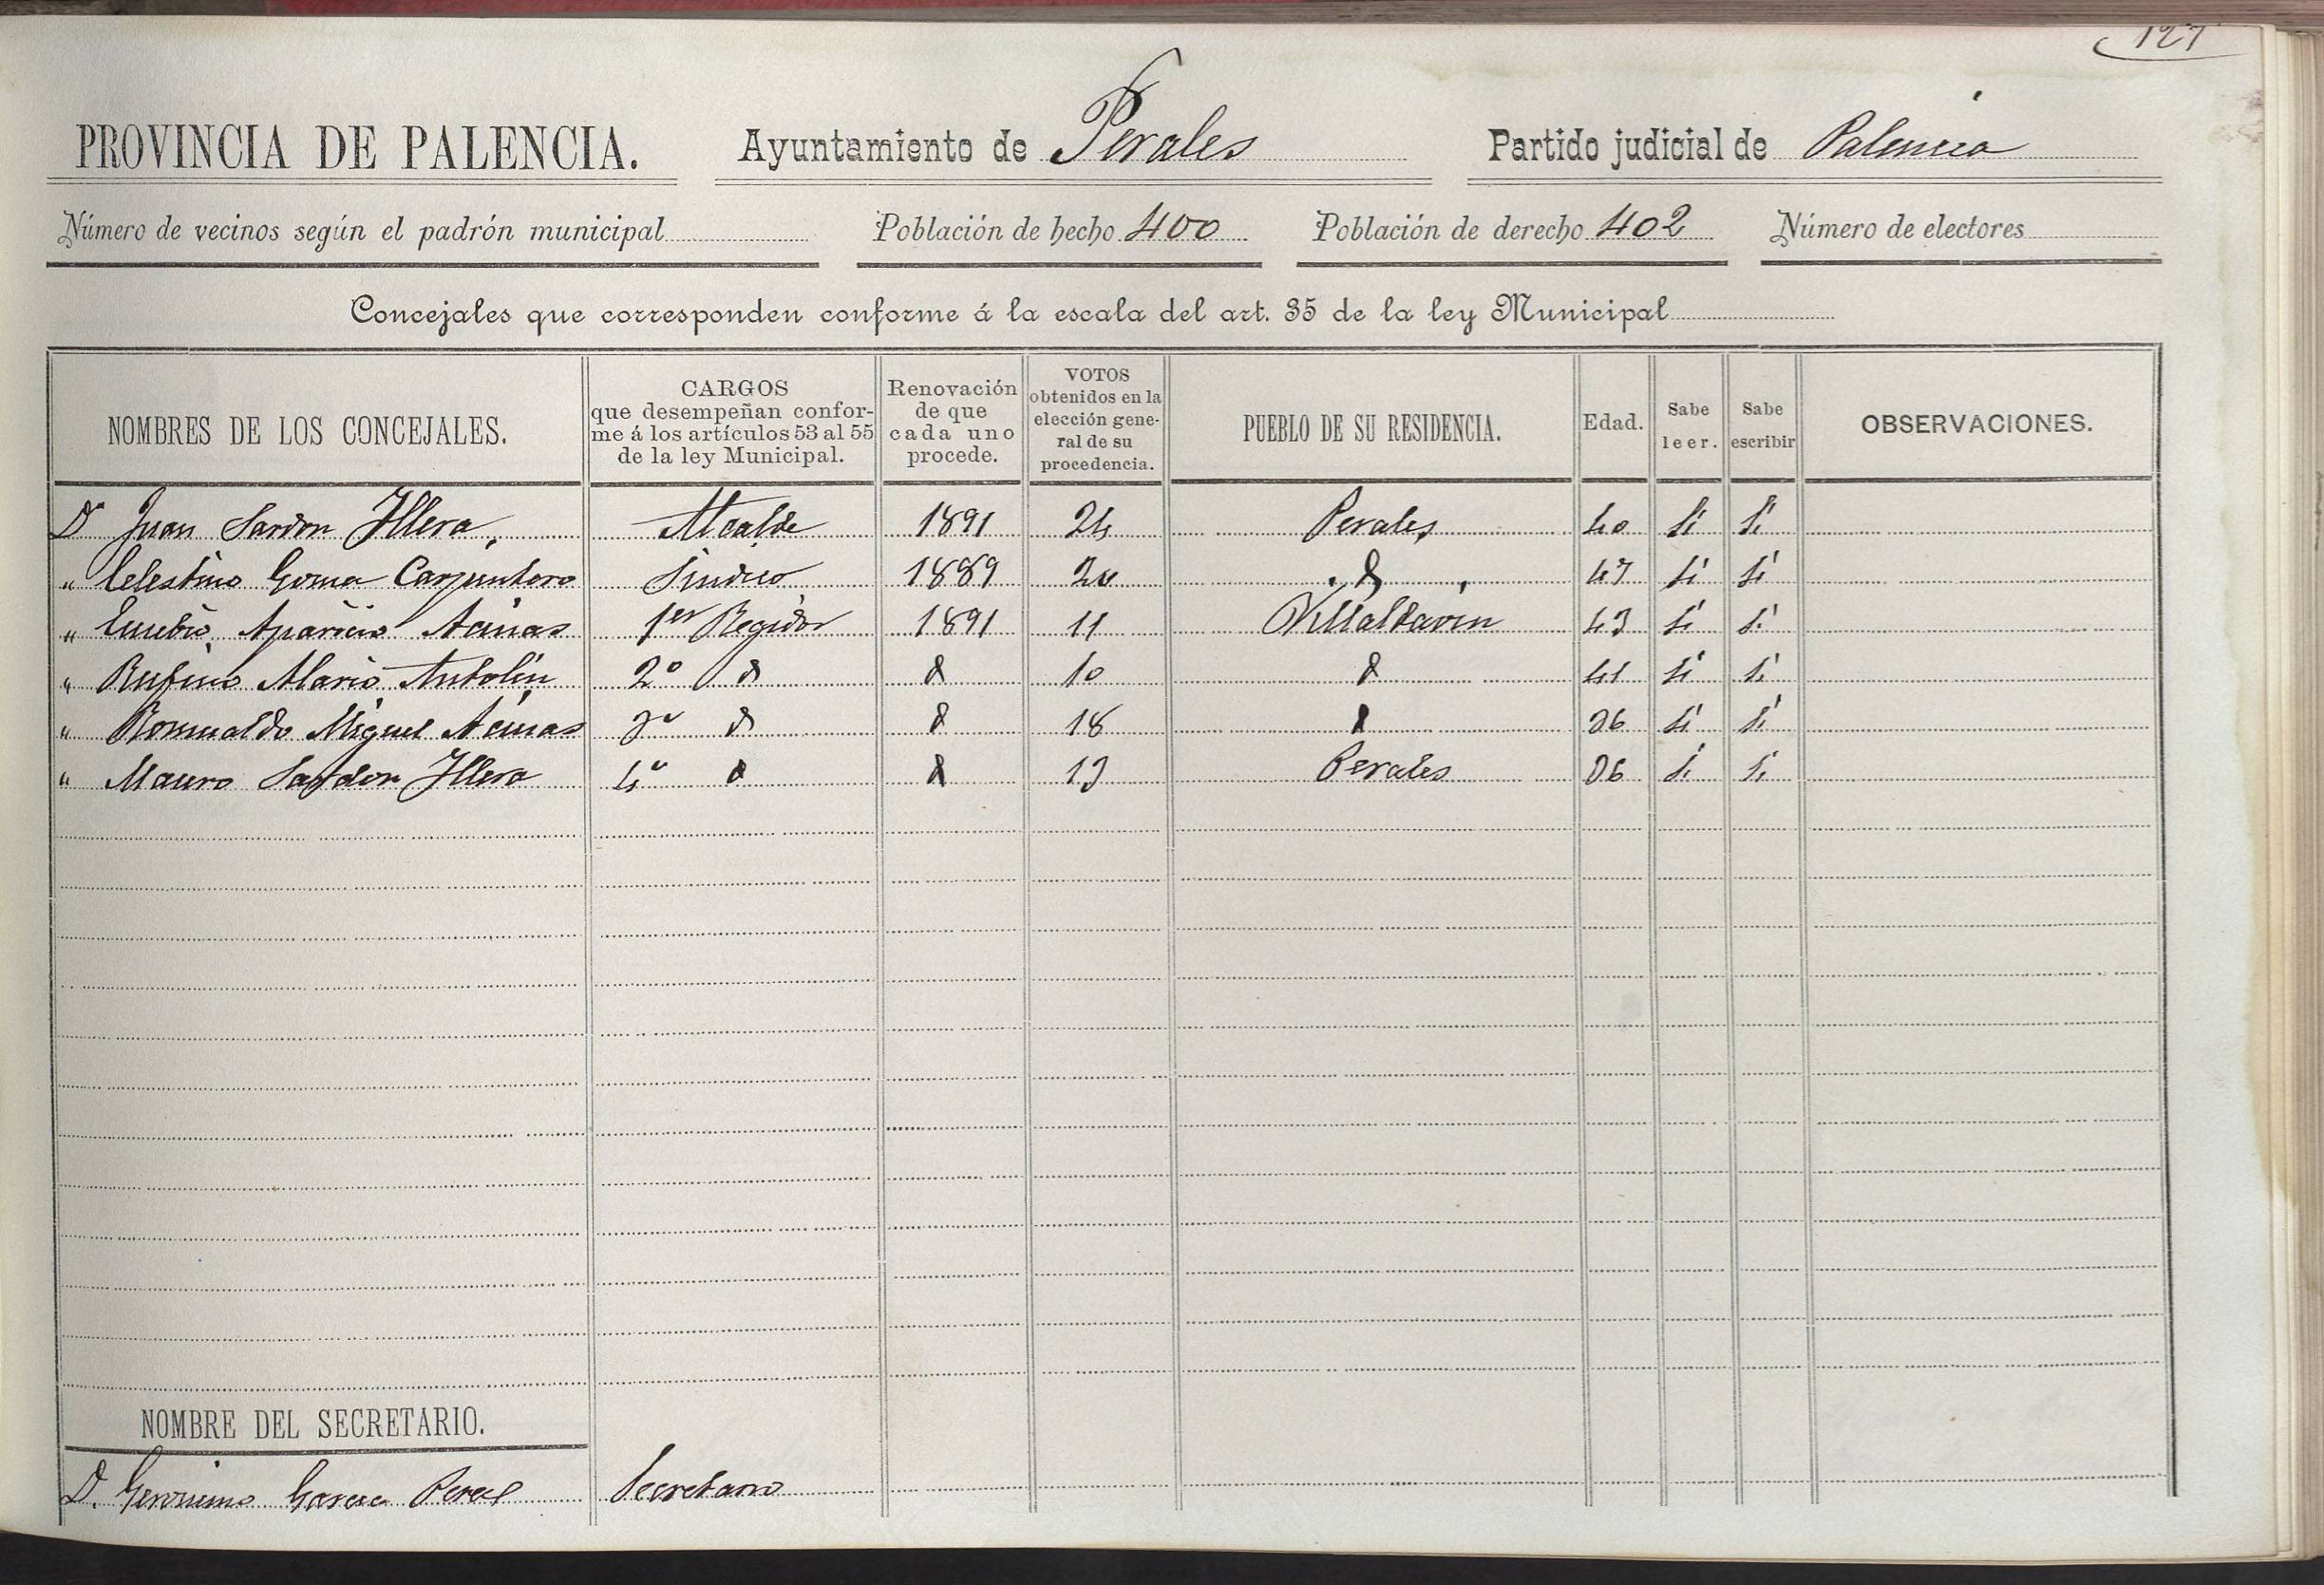 127
PROVINCIA DE PALENCIA. Ayuntamiento de Perales Partido judicial de Palencia
Número de vecinos según el padrón municipal Población de hecho 400 Población de derecho 402 Número de electores
Concejales que corresponden conforme á la escala del art. 35 de la ley Municipal
NOMBRES DE LOS CONCEJALES. CARGOS que desempeñan conforme á los artículos 53 al 55 de la ley Municipal. Renovación de que cada uno procede. VOTOS obtenidos en la elección general de su procedencia. PUEBLO DE SU RESIDENCIA. Edad. Sabe leer. Sabe escribir OBSERVACIONES.
D Juan Sardon Illera Alcalde 1891 24 Perales 40 Si Si
" Celestino Goma Carpintero Sindico 1889 20 & 47 Si Si
" Eusebio Aparicio Acinas 1er Regidor 1891 11 Villaldavin 43 Si Si
" Rufino Mario Antolin 2º & & 10 & 41 Si Si
" Romualdo Miguel Acinas 3º & & 18 & 36 Si Si
" Mauro Sardon Illera 4º & & 13 Perales 36 Si Si
NOMBRE DEL SECRETARIO.
D. Geronimo Garcia Secretario